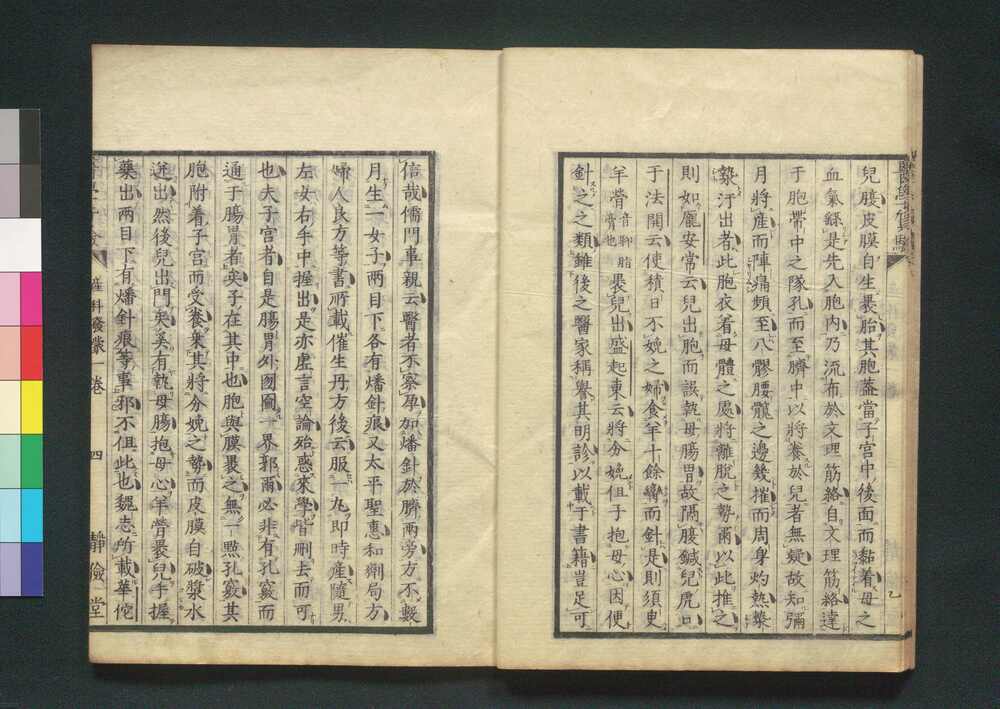 兒腹皮膜自生裹胎其胞蓋當子宮中後面而黏着母之
血氣録是先入胞内乃流布於文理筋絡自文理筋絡達
于胞帶中之隊孔而至臍中以將養於兒者無疑故知彌
月將產而陣痛頻至八髎腰髖之邊幾摧而周身灼熱藥
藥汙出者此胞衣着母體之處將離脫之勢爾以此推之
則如龐安常云兒出胞而誤執母腸胃故隔腹鍼兒虎口
于法開云使積日不娩之婦食羊十餘臠而針是則須臾
羊膋音聊脂膏也裹兒出盛起東云將分娩但子抱母心因便
針之之類雖後之醫家稱譽其明診以載于書籍豈足可
信哉儒門事親云醫者不察孕加燔針於臍兩旁方不數
月生一女子兩目下各有燔針痕又太平聖惠和劑局方
婦人良方等書所載催生丹方後云服一丸即時產隨男
左女右手中握出是亦虛言空論殆惑來學皆刪去而可
也夫子宮者自是腸胃外國圖一界郭爾必非有孔竅而
通于腸胃者矣子在其中也胞與膜裹之無一點孔竅其
胞附着子宮而受養衆其將分娩之勢而皮膜自破漿水
迸出然後兒出門矣奚有執母腸抱母心羊膋裹兒手握
藥出兩目下有燔針痕等事邪不但此也魏志所載華佗
產科發蒙一卷 四 靜儉堂